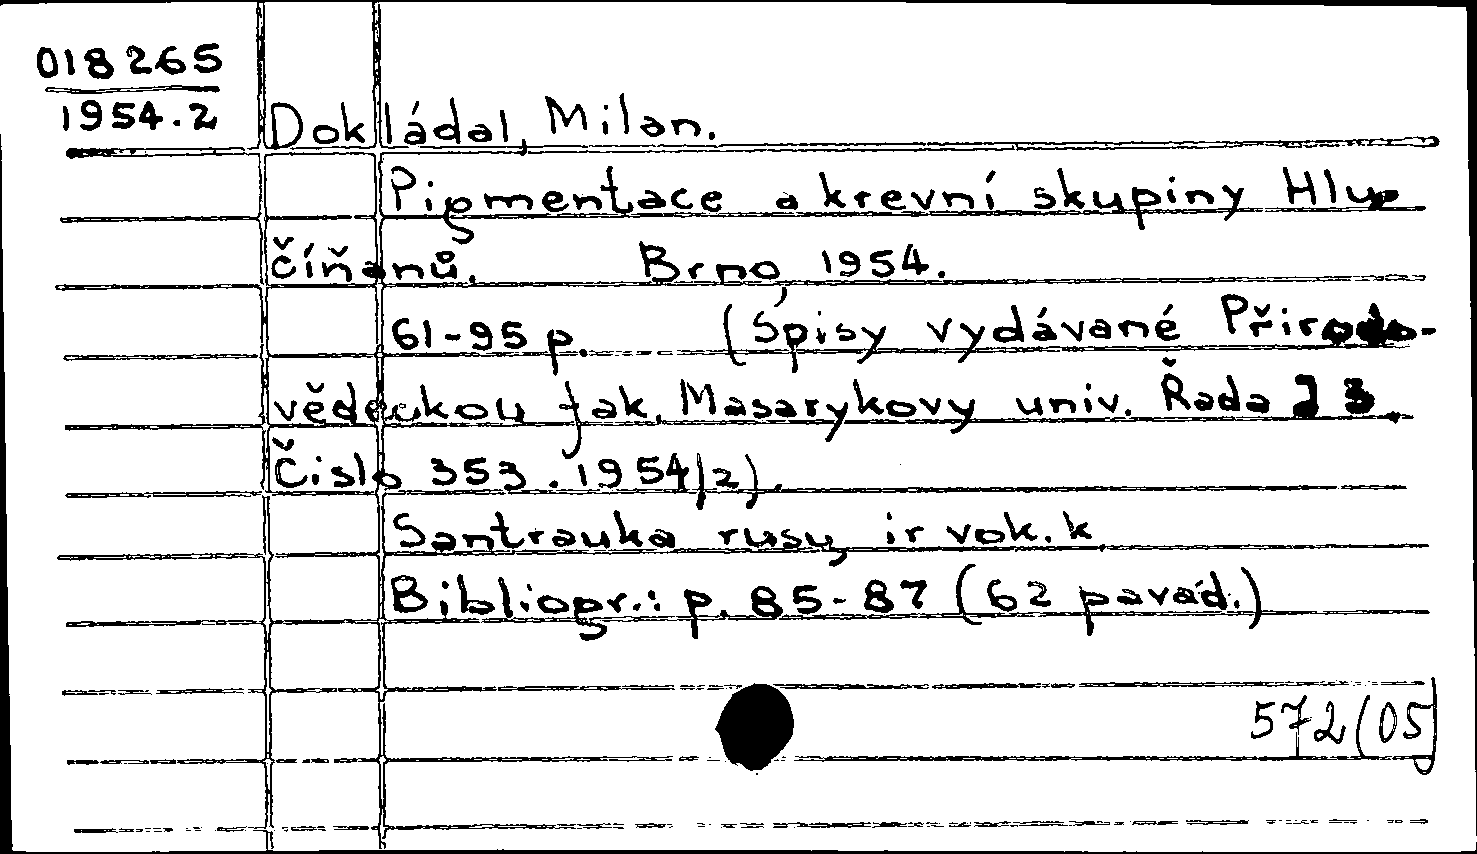 018265
1954.2
Dokládal, Milan.
Pigmentace a krevní skupiny Hlu-
číňanů. Brno, 1954.
61-95 p. (Spisy vydávané Přirodo-
vědeckou fak. Masarykovy univ. Řada J 3.
Čislo 353. 1954/2).
Santrauka rusų ir vok. k.
Bibliogr.: p. 85-87 (62 pavad.)
572(05)